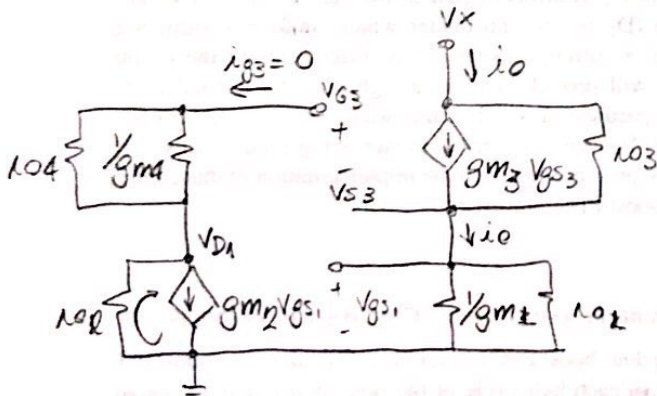 VX
ig3=0
io
VG3
+
ro4
1/gm4
-
gm3 Vgs3
ro3
VS3
VD1
io
ro2
gm2Vgs1
+
Vgs1
-
1/gm1
ro1